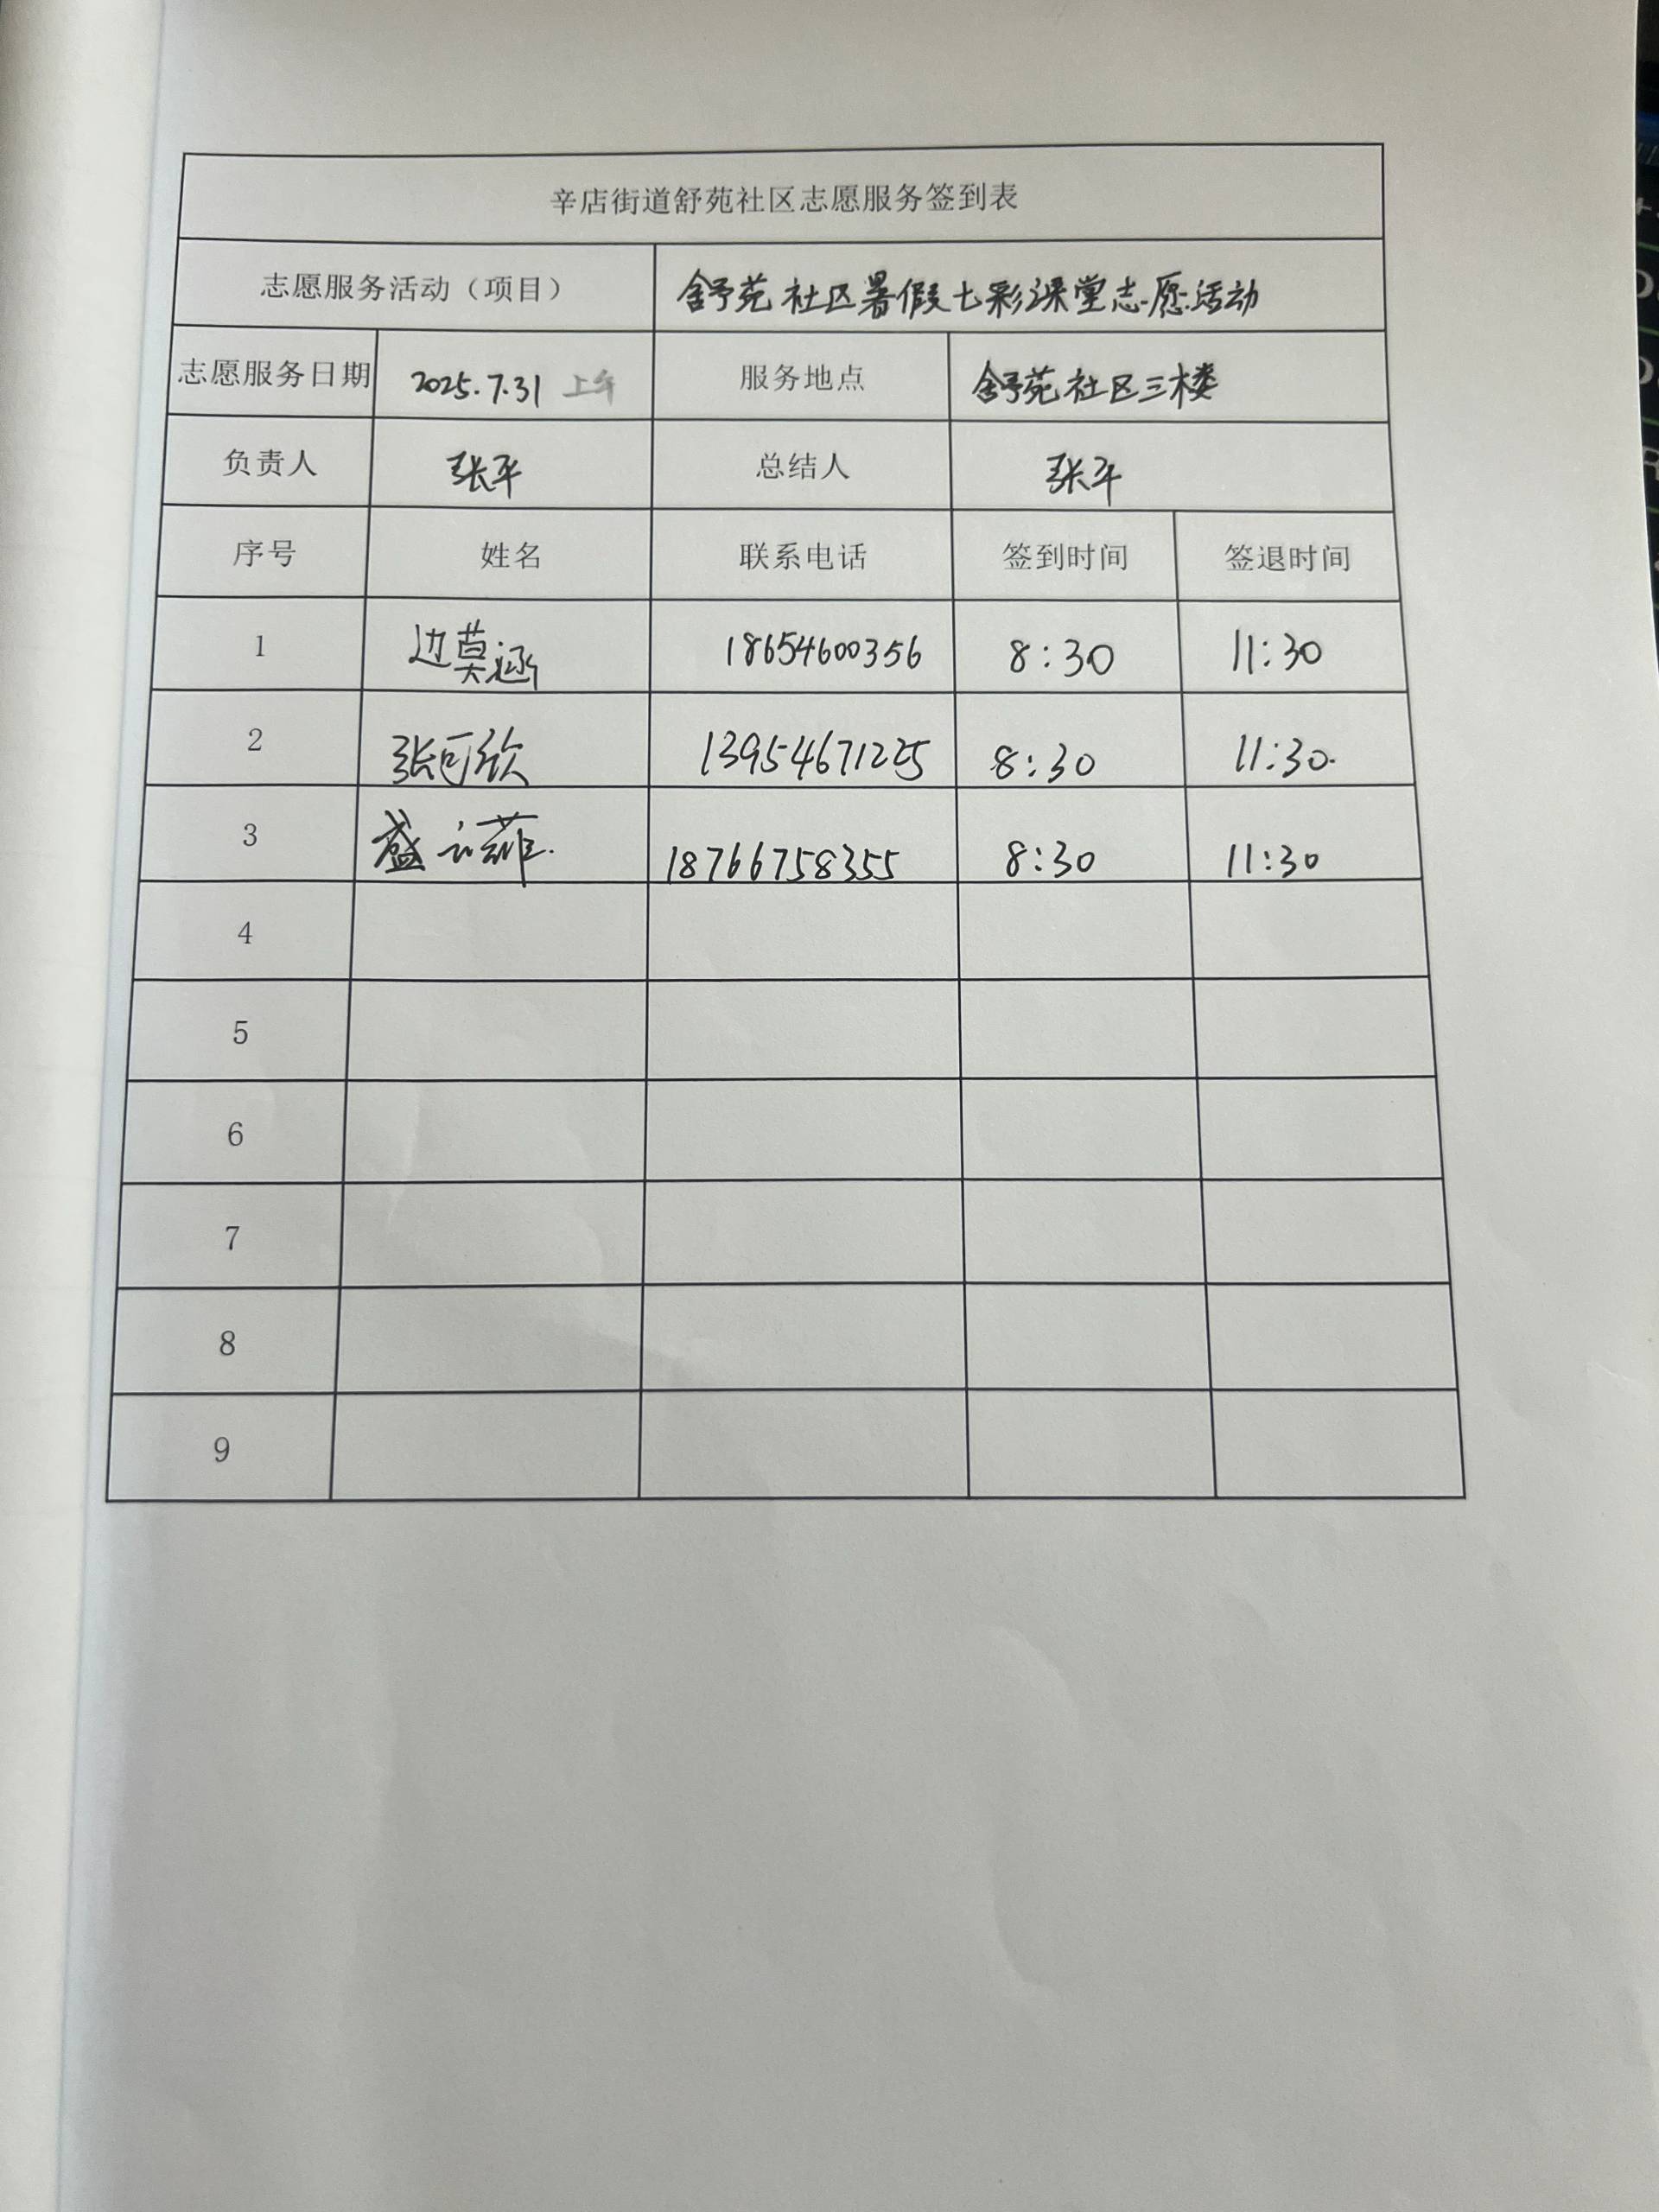 辛店街道舒苑社区志愿服务签到表
志愿服务活动（项目） 舒苑社区暑假七彩课堂志愿活动
志愿服务日期 2025.7.31 上午 服务地点 舒苑社区三楼
负责人 张平 总结人 张平
序号 姓名 联系电话 签到时间 签退时间
1 边莫涵 18654600356 8:30 11:30
2 张可欣 13954671225 8:30 11:30.
3 盛 18766758355 8:30 11:30
4
5
6
7
8
9